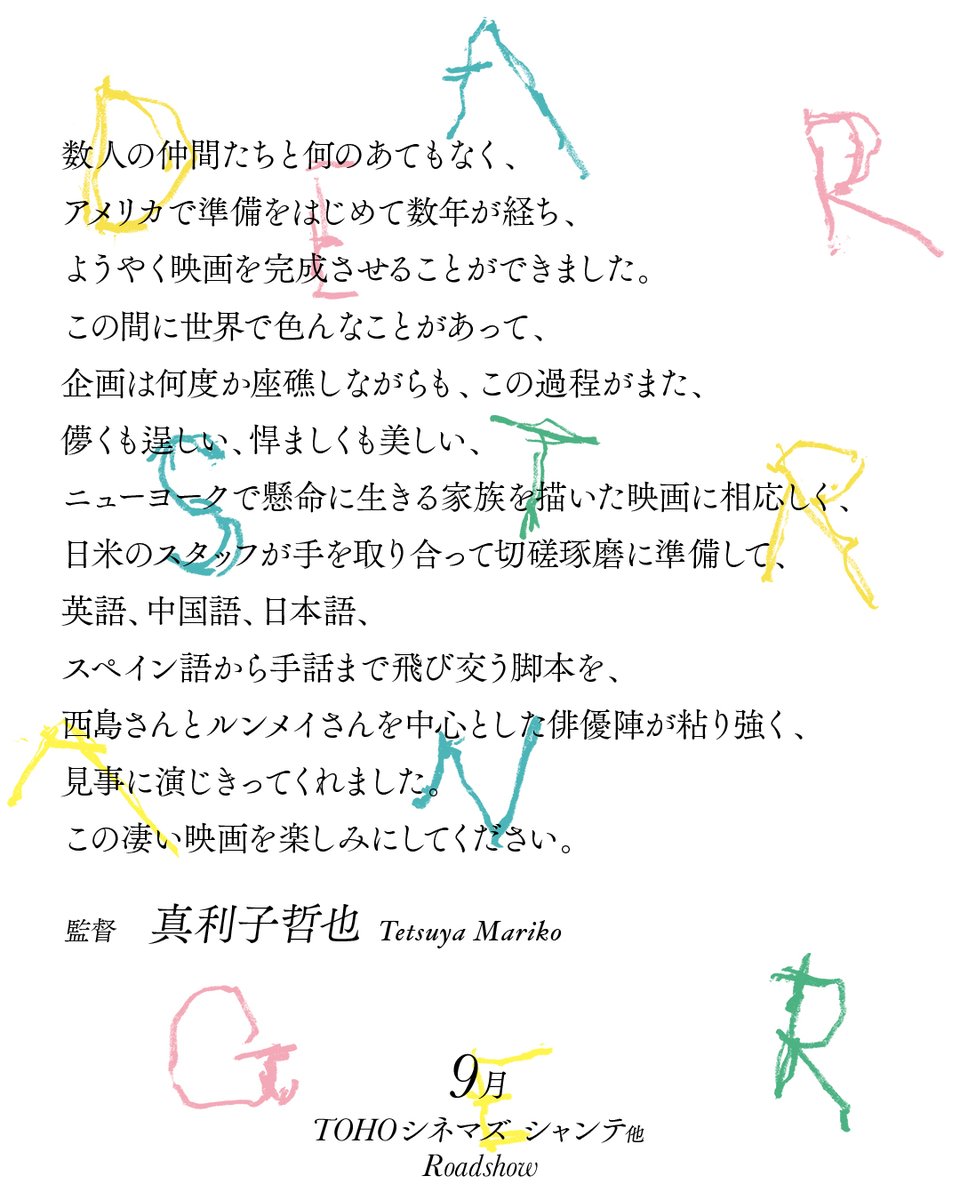 D E A R
数人の仲間たちと何のあてもなく、
アメリカで準備をはじめて数年が経ち、
ようやく映画を完成させることができました。
この間に世界で色んなことがあって、
企画は何度か座礁しながらも、この過程がまた、
儚くも逞しい、悍ましくも美しい、
S T R
ニューヨークで懸命に生きる家族を描いた映画に相応しく、
日米のスタッフが手を取り合って切磋琢磨に準備して、
英語、中国語、日本語、
スペイン語から手話まで飛び交う脚本を、
西島さんとルンメイさんを中心とした俳優陣が粘り強く、
A N
見事に演じきってくれました。
この凄い映画を楽しみにしてください。
監督 真利子哲也 Tetsuya Mariko
G E R
9月
TOHOシネマズ シャンテ他
Roadshow